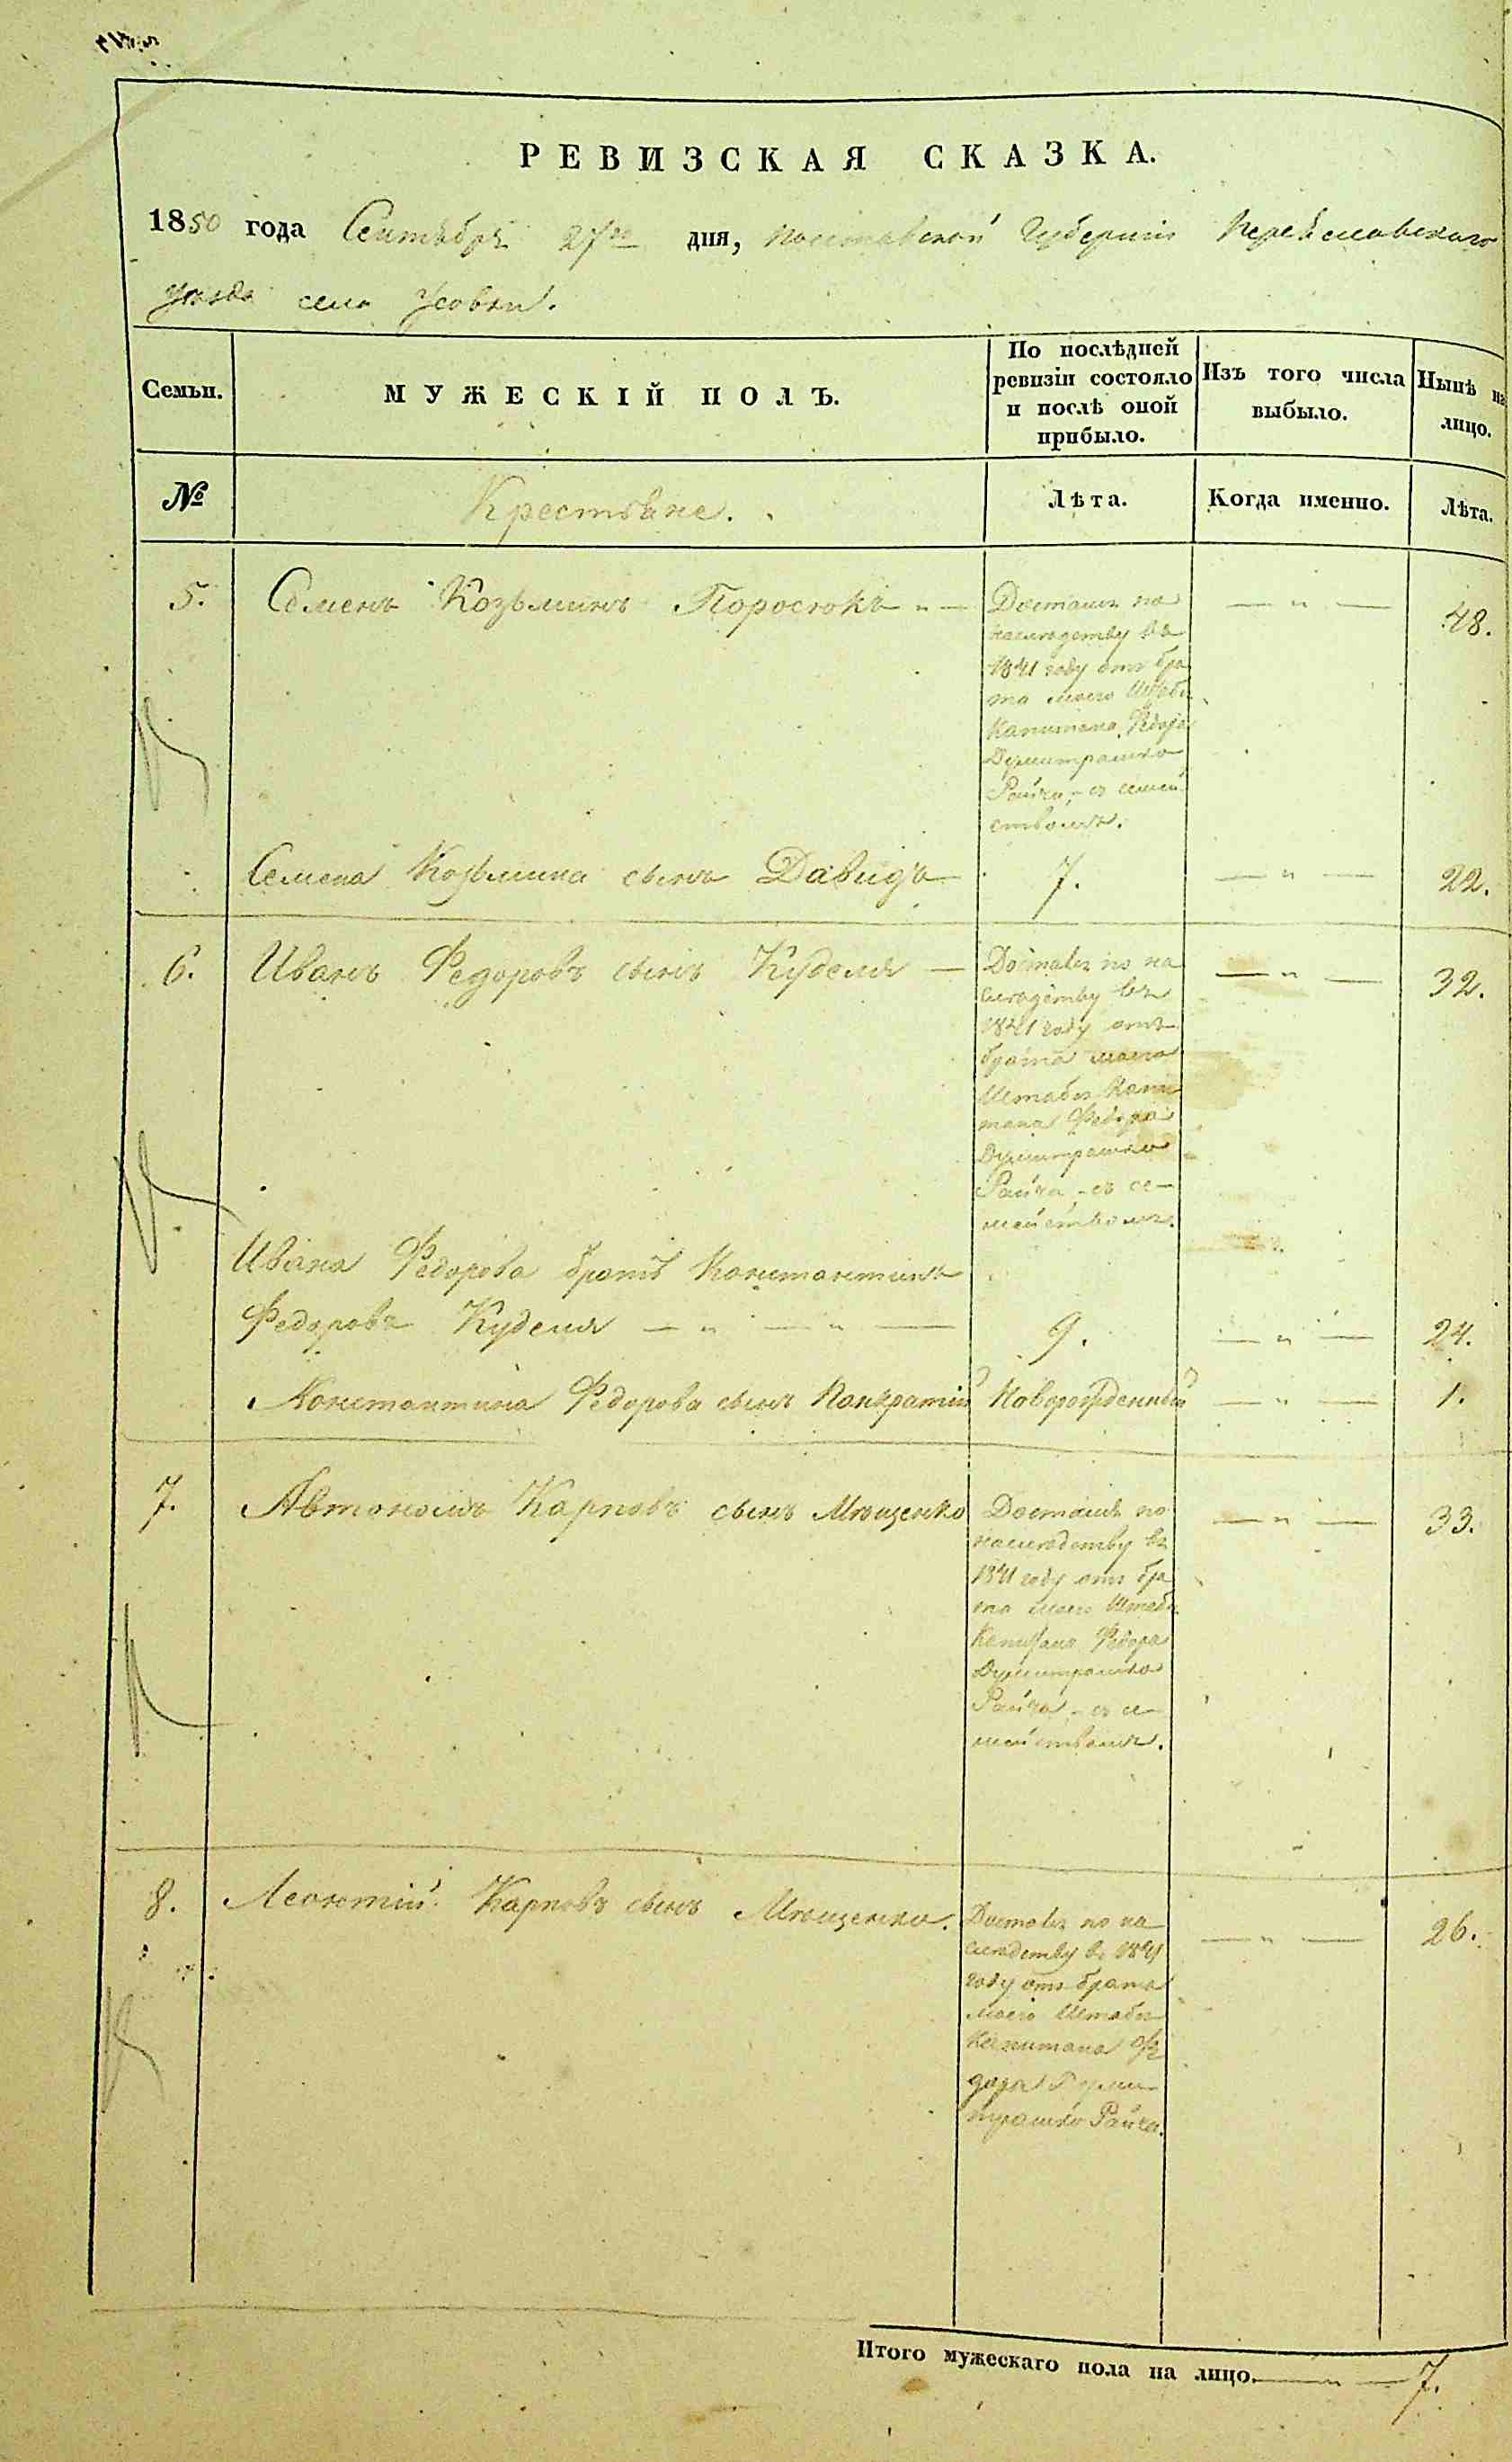 РЕВИЗСКАЯ СКАЗКА.
1850 года Сентября 27го дня, Полтавской Губернии Переяславскаго
уезда села Усовки.
Семьи.
МУЖЕСКІЙ ПОЛЪ.
По послѣдней
ревизіи состояло
и послѣ оной
прибыло.
Изъ того числа
выбыло.
Нынѣ на
лицо.
№
Крестьяне.
Лѣта.
Когда именно.
Лѣта.
5. Семенъ Козьминъ Поросюкъ „ — — „ — 48.
Достался по
наслѣдству въ
1841 году отъ бра
та моего Штабсъ
Капитана Федора
Думитрашко
Райча, - съ семей
ствомъ.
Семена Козьмина сынъ Давидъ — 7. — „ — 22.
6. Иванъ Федоровъ сынъ Куделя — — „ — 32.
Достался по на
слѣдству въ
1841 году отъ
брата моего
Штабсъ Капи
тана Федора
Думитрашко
Райча, - съ се-
мействомъ.
Ивана Федорова братъ Константинъ
Федоровъ Куделя — „ — „ — 9. — „ — 24.
Константина Федорова сынъ Панкратій Новорожденный — „ — 1.
7. Автономъ Карповъ сынъ Мѣщенко — „ — 33.
Достался по
наслѣдству въ
1841 году отъ бра
та моего Штабсъ
Капитана Федора
Думитрашко
Райча, - съ се-
мействомъ.
8. Леонтій Карповъ сынъ Мѣщенко. — „ — 26.
Достался по на
слѣдству въ 1841
году отъ брата
моего Штабсъ
Капитана Фе
дора Думи-
трашко Райча.
Итого мужескаго пола на лицо. — „ — 7.